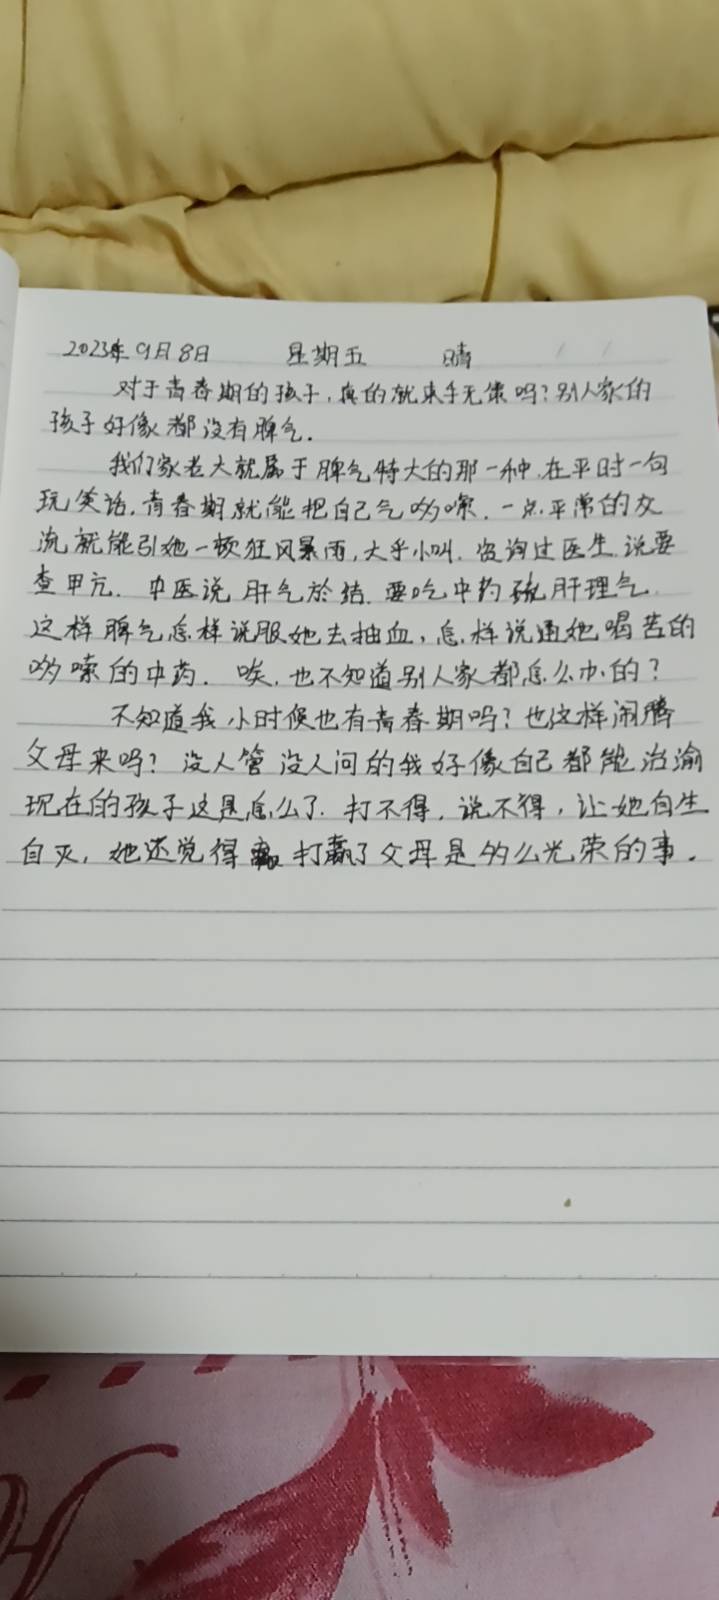 2023年9月8日 星期五 晴
对于青春期的孩子,真的就束手无策吗?别人家的
孩子好像都没有脾气.
我们家老大就属于脾气特大的那一种.在平时一句
玩笑话,青春期就能把自己气哆嗦.一点平常的交
流就能引她一顿狂风暴雨,大乎小叫.咨询过医生说要
查甲亢.中医说肝气於结.要吃中药疏肝理气.
这样脾气怎样说服她去抽血,怎样说通她喝苦的
哆嗦的中药.唉,也不知道别人家都怎么办的?
不知道我小时候也有青春期吗?也这样闹腾
父母来吗?没人管没人问的我好像自己都能治渝
现在的孩子这是怎么了.打不得,说不得,让她自生
自灭,她还觉得打赢了父母是多么光荣的事.